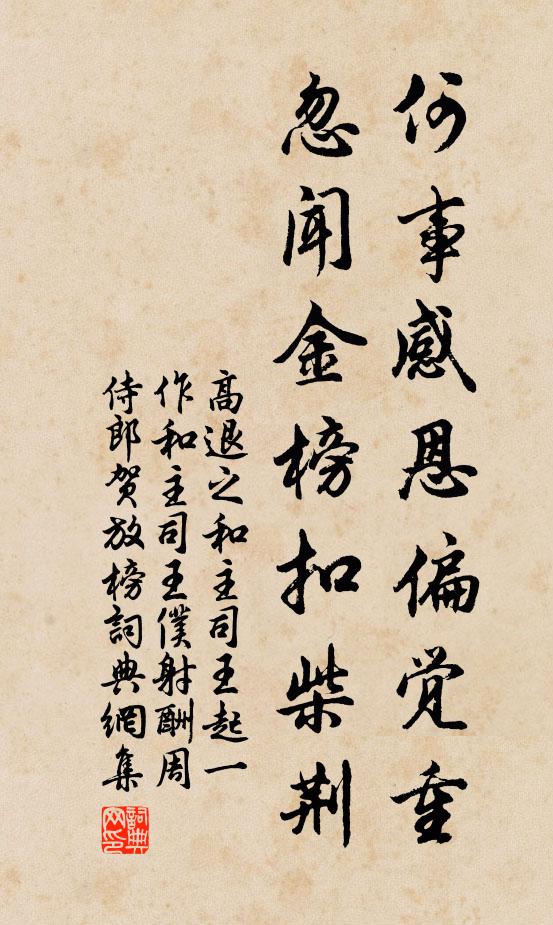 何事感恩偏觉重
忽闻金榜扣柴荆
高退之和主司王起一
作和主司王僕射酬周
侍郎贺放榜詞典網集
詞典
网印